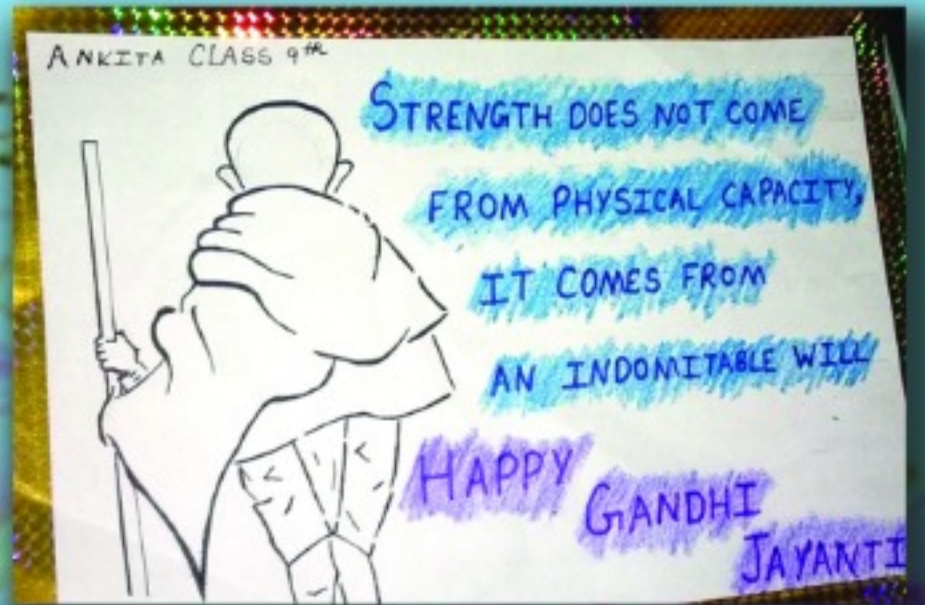 ANKITA CLASS 9TH
STRENGTH DOES NOT COME
FROM PHYSICAL CAPACITY,
IT COMES FROM
AN INDOMITABLE WILL
HAPPY
GANDHI
JAYANTI